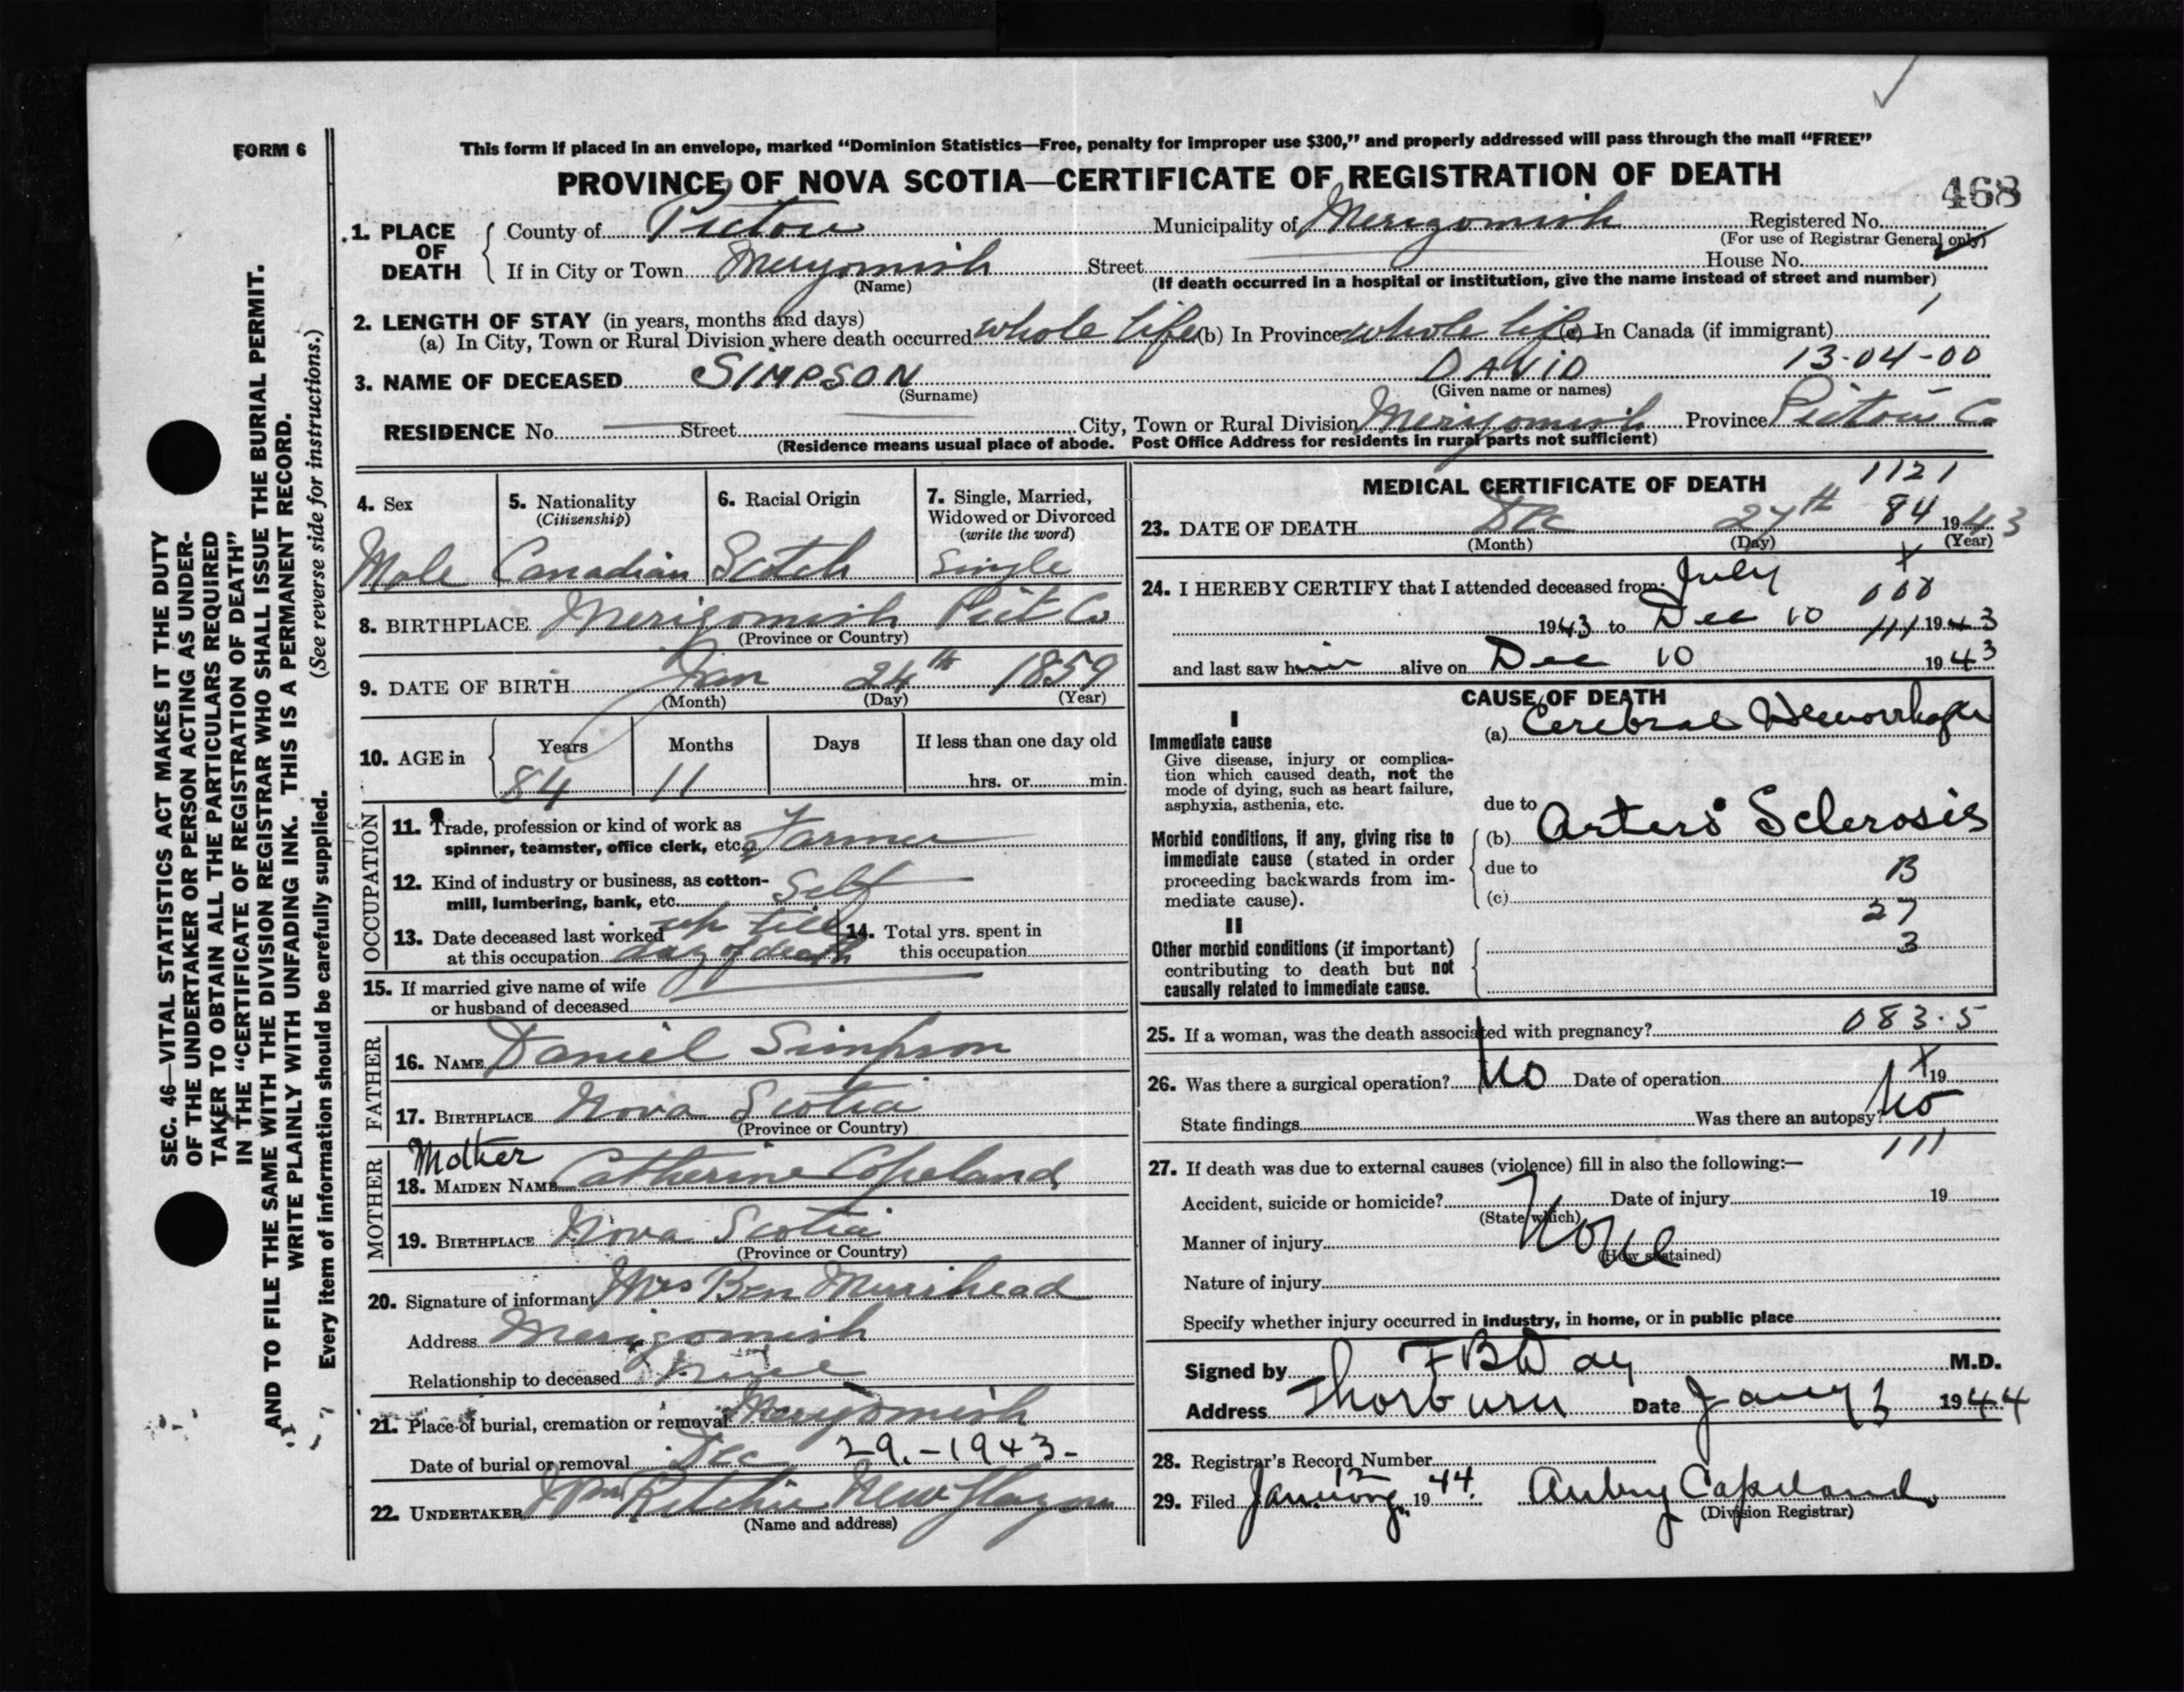 FORM 6
This form if placed in an envelope, marked “Dominion Statistics—Free, penalty for improper use $300,” and properly addressed will pass through the mail “FREE”
PROVINCE OF NOVA SCOTIA—CERTIFICATE OF REGISTRATION OF DEATH
468
1. PLACE OF DEATH
County of Pictou Municipality of Merigomish Registered No.
(For use of Registrar General only)
If in City or Town Merigomish Street House No.
(Name) (If death occurred in a hospital or institution, give the name instead of street and number)
2. LENGTH OF STAY (in years, months and days)
(a) In City, Town or Rural Division where death occurred whole life (b) In Province whole life (c) In Canada (if immigrant)
1
13-04-00
3. NAME OF DECEASED SIMPSON DAVID
(Surname) (Given name or names)
RESIDENCE No. Street City, Town or Rural Division Merigomish Province Pictou Co
(Residence means usual place of abode. Post Office Address for residents in rural parts not sufficient)
4. Sex
Male
5. Nationality
(Citizenship)
Canadian
6. Racial Origin
Scotch
7. Single, Married,
Widowed or Divorced
(write the word)
Single
8. BIRTHPLACE Merigomish Pict Co
(Province or Country)
9. DATE OF BIRTH Jan 24th 1859
(Month) (Day) (Year)
10. AGE in
Years Months Days If less than one day old
84 11 hrs. or min.
OCCUPATION
11. Trade, profession or kind of work as
spinner, teamster, office clerk, etc. Farmer
12. Kind of industry or business, as cotton-
mill, lumbering, bank, etc. Self
13. Date deceased last worked up till
at this occupation day of death
14. Total yrs. spent in
this occupation
15. If married give name of wife
or husband of deceased
FATHER
16. NAME Daniel Simpson
17. BIRTHPLACE Nova Scotia
(Province or Country)
MOTHER
Mother
18. MAIDEN NAME Catherine Copeland
19. BIRTHPLACE Nova Scotia
(Province or Country)
20. Signature of informant Mrs Ben Muirhead
Address Merigomish
Relationship to deceased
21. Place of burial, cremation or removal Merigomish
Date of burial or removal Dec 29.-1943-
22. UNDERTAKER Ritchie New Glasgow
(Name and address)
MEDICAL CERTIFICATE OF DEATH
1121
84
23. DATE OF DEATH 27th 1943
(Month) (Day) (Year)
24. I HEREBY CERTIFY that I attended deceased from July
000
1943 to Dec 10 1943
111
and last saw him alive on Dec 10 1943
CAUSE OF DEATH
I
Immediate cause
Give disease, injury or complica-
tion which caused death, not the
mode of dying, such as heart failure,
asphyxia, asthenia, etc.
(a) Cerebral Hemorrhage
due to
Morbid conditions, if any, giving rise to
immediate cause (stated in order
proceeding backwards from im-
mediate cause).
(b) Arterio Sclerosis
due to
B
(c)
27
3
II
Other morbid conditions (if important)
contributing to death but not
causally related to immediate cause.
25. If a woman, was the death associated with pregnancy?
083.5
26. Was there a surgical operation? No Date of operation 19
X
State findings Was there an autopsy? No
111
27. If death was due to external causes (violence) fill in also the following:—
Accident, suicide or homicide? Date of injury 19
(State which)
Manner of injury None
(How sustained)
Nature of injury
Specify whether injury occurred in industry, in home, or in public place
Signed by F B Day M.D.
Address Thorburn Date Jany 1944
28. Registrar's Record Number
29. Filed January 12 1944. Aubry Copeland
(Division Registrar)
SEC. 46—VITAL STATISTICS ACT MAKES IT THE DUTY
OF THE UNDERTAKER OR PERSON ACTING AS UNDER-
TAKER TO OBTAIN ALL THE PARTICULARS REQUIRED
IN THE “CERTIFICATE OF REGISTRATION OF DEATH”
AND TO FILE THE SAME WITH THE DIVISION REGISTRAR WHO SHALL ISSUE THE BURIAL PERMIT.
WRITE PLAINLY WITH UNFADING INK. THIS IS A PERMANENT RECORD.
Every item of information should be carefully supplied. (See reverse side for instructions.)